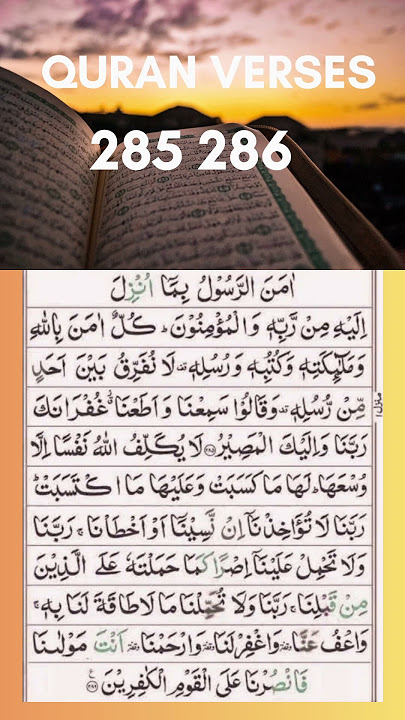 QURAN VERSES
285 286
اٰمَنَ الرَّسُوْلُ بِمَاۤ اُنْزِلَ
اِلَيْهِ مِنْ رَّبِّهٖ وَالْمُؤْمِنُوْنَ ؕ كُلٌّ اٰمَنَ بِاللّٰهِ
وَمَلٰٓئِكَتِهٖ وَكُتُبِهٖ وَرُسُلِهٖ ۟ لَا نُفَرِّقُ بَيْنَ اَحَدٍ
مِّنْ رُّسُلِهٖ ۟ وَقَالُوْا سَمِعْنَا وَاَطَعْنَا ٭۫ غُفْرَانَكَ
رَبَّنَا وَاِلَيْكَ الْمَصِيْرُ ﴿۲۸۵﴾ لَا يُكَلِّفُ اللّٰهُ نَفْسًا اِلَّا
وُسْعَهَا ؕ لَهَا مَا كَسَبَتْ وَعَلَيْهَا مَا اكْتَسَبَتْ ؕ
رَبَّنَا لَا تُؤَاخِذْنَاۤ اِنْ نَّسِيْنَاۤ اَوْ اَخْطَاْنَا ۚ رَبَّنَا
وَلَا تَحْمِلْ عَلَيْنَاۤ اِصْرًا كَمَا حَمَلْتَهٗ عَلَى الَّذِيْنَ
مِنْ قَبْلِنَا ۚ رَبَّنَا وَلَا تُحَمِّلْنَا مَا لَا طَاقَةَ لَنَا بِهٖ ۚ
وَاعْفُ عَنَّا ۥ وَاغْفِرْ لَنَا ۥ وَارْحَمْنَا ۥ اَنْتَ مَوْلٰىنَا
فَانْصُرْنَا عَلَى الْقَوْمِ الْكٰفِرِيْنَ ﴿۲۸۶﴾
منزل ۱